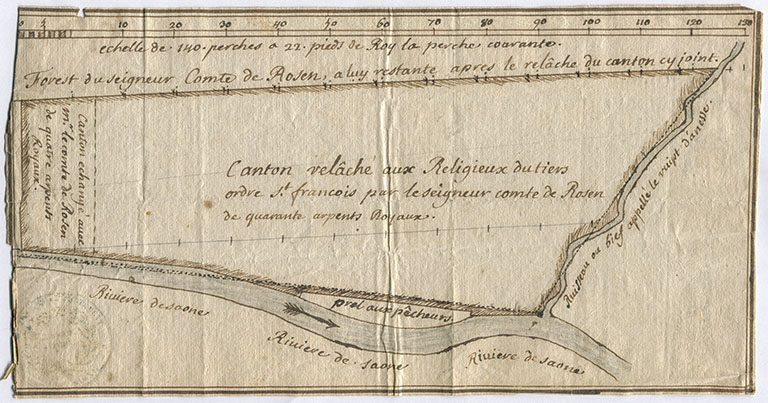 0 10 20 30 40 50 60 70 80 90 100 110 120 130
echelle de 140. perches a 22. pieds de Roy la perche courante.
Forest du seigneur Comte de Rosen, a luy restante apres le relâche du canton cy joint.
Canton echangé avec
Mr. le comte de Rosen
de quatre arpents
Royaux.
Canton relâché aux Religieux du tiers
ordre St. françois par le seigneur comte de Rosen
de quarante arpents Royaux.
Ruisseau ou bief appellé le rupt d'anesse.
Riviere de saone
prel aux pêcheurs.
Riviere de saone
Riviere de saone